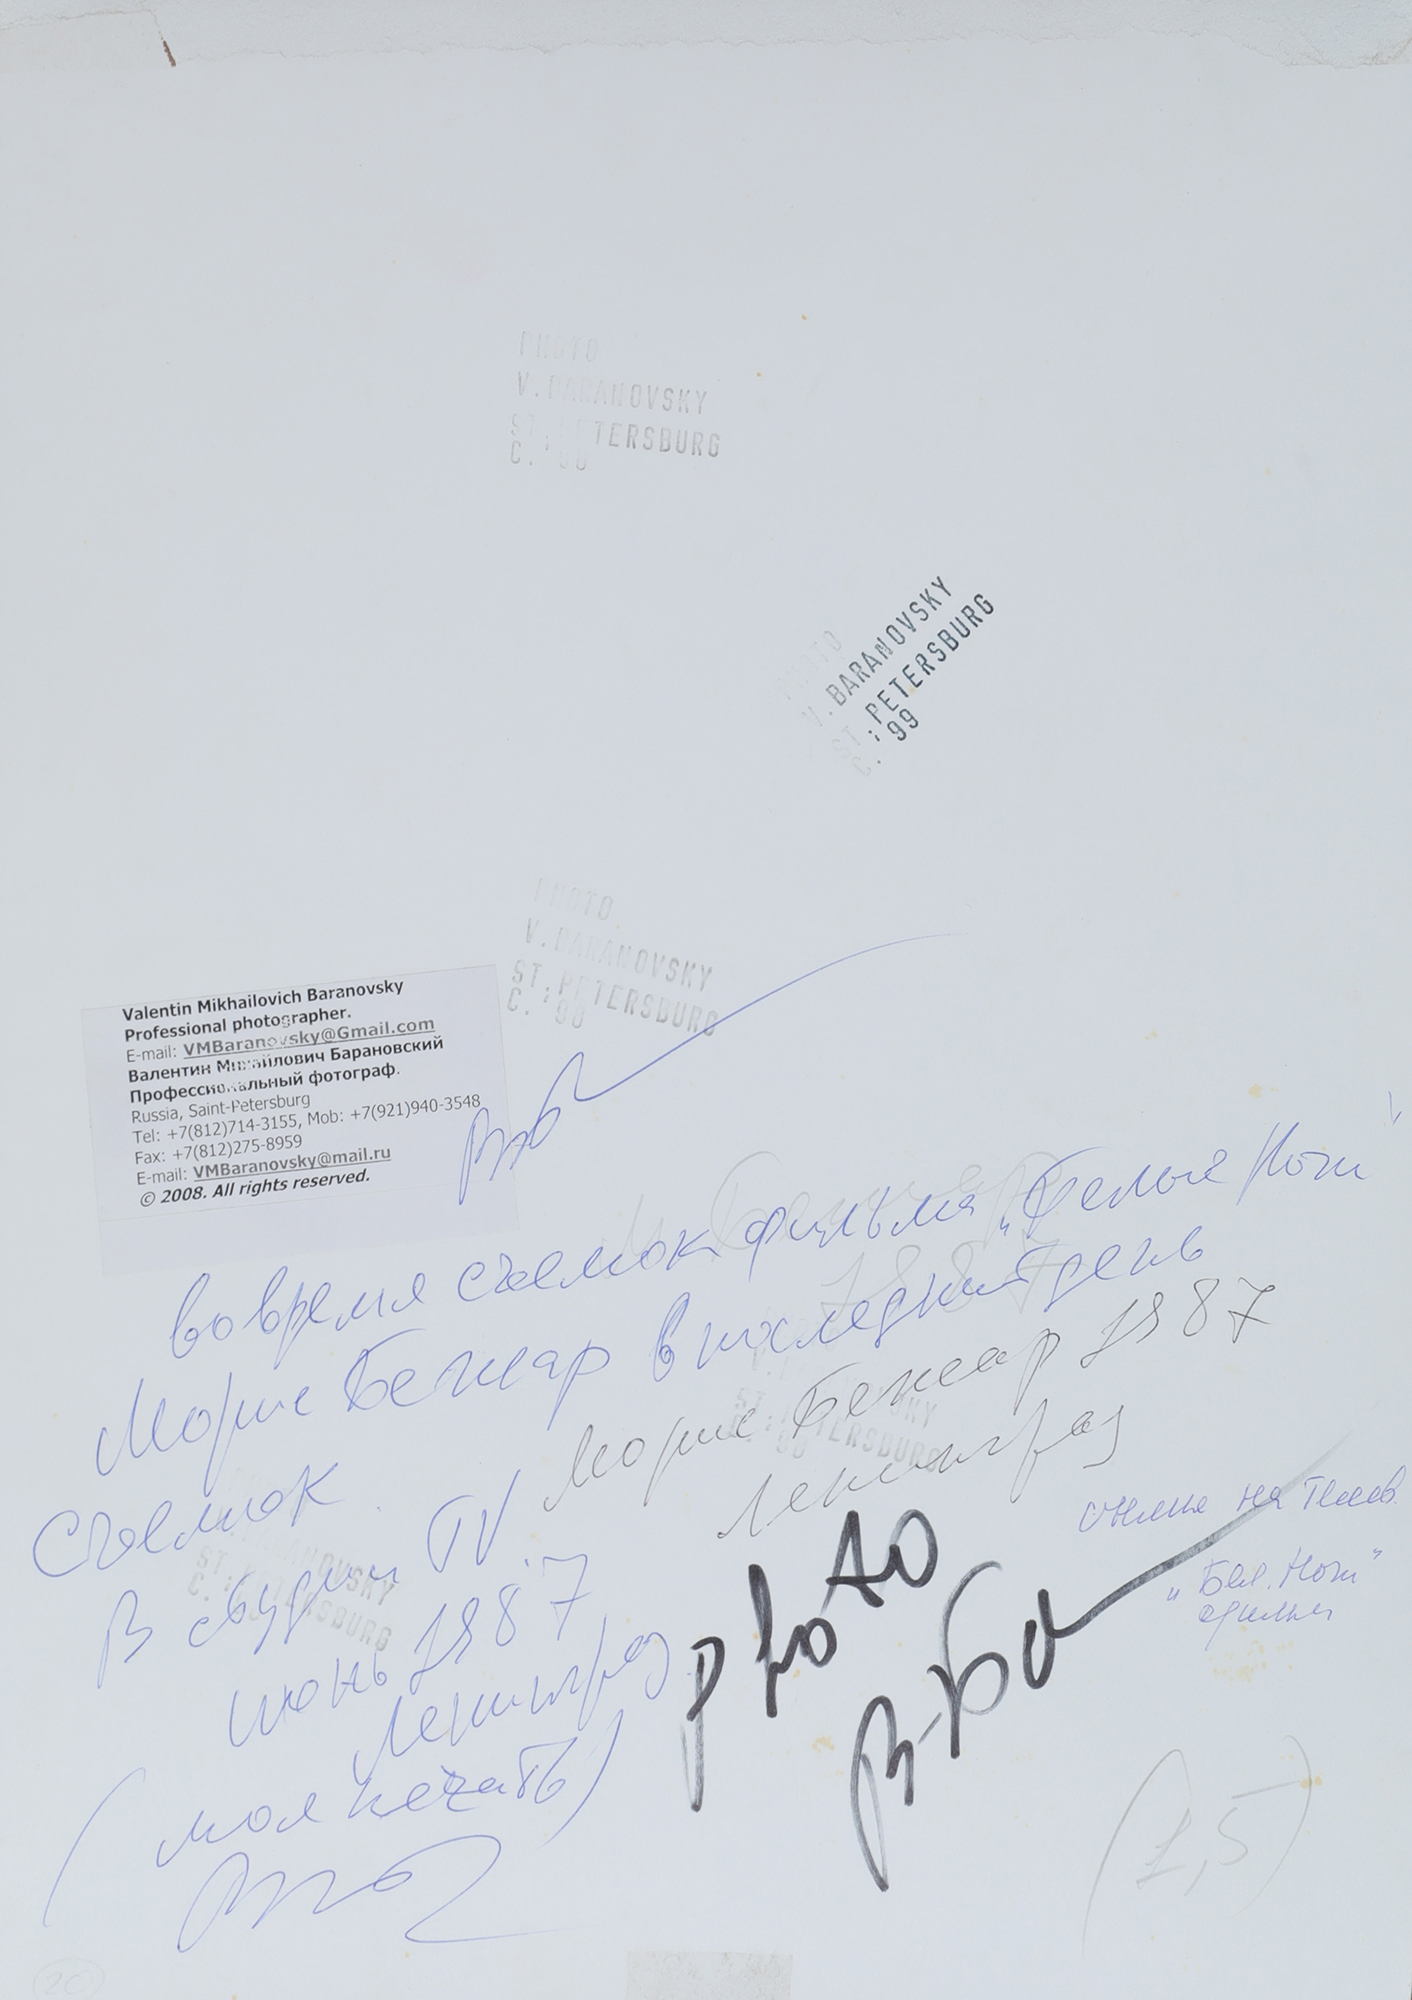 PHOTO
V. BARANOVSKY
ST. PETERSBURG
C.
PHOTO
V. BARANOVSKY
ST. PETERSBURG
C. '99
PHOTO
V. BARANOVSKY
ST. PETERSBURG
C.
Valentin Mikhailovich Baranovsky
Professional photographer.
E-mail: VMBaranovsky@Gmail.com
Валентин Михайлович Барановский
Профессиональный фотограф.
Russia, Saint-Petersburg
Tel: +7(812)714-3155, Mob: +7(921)940-3548
Fax: +7(812)275-8959
E-mail: VMBaranovsky@mail.ru
© 2008. All rights reserved.
во время съемок фильма „Белые Ночи"
Морис Бежар в последний день
съемок
В студии TV
июнь 1987
Ленинград
(моя печать)
М. Бежар
1987
Морис Бежар 1987
Ленинград
KY
ST. PETERSBURG
BARANOVSKY
ST. PETERSBURG
C.
photo
В. Ба
на телев.
„Бел. Ночи"
(1,5)
20